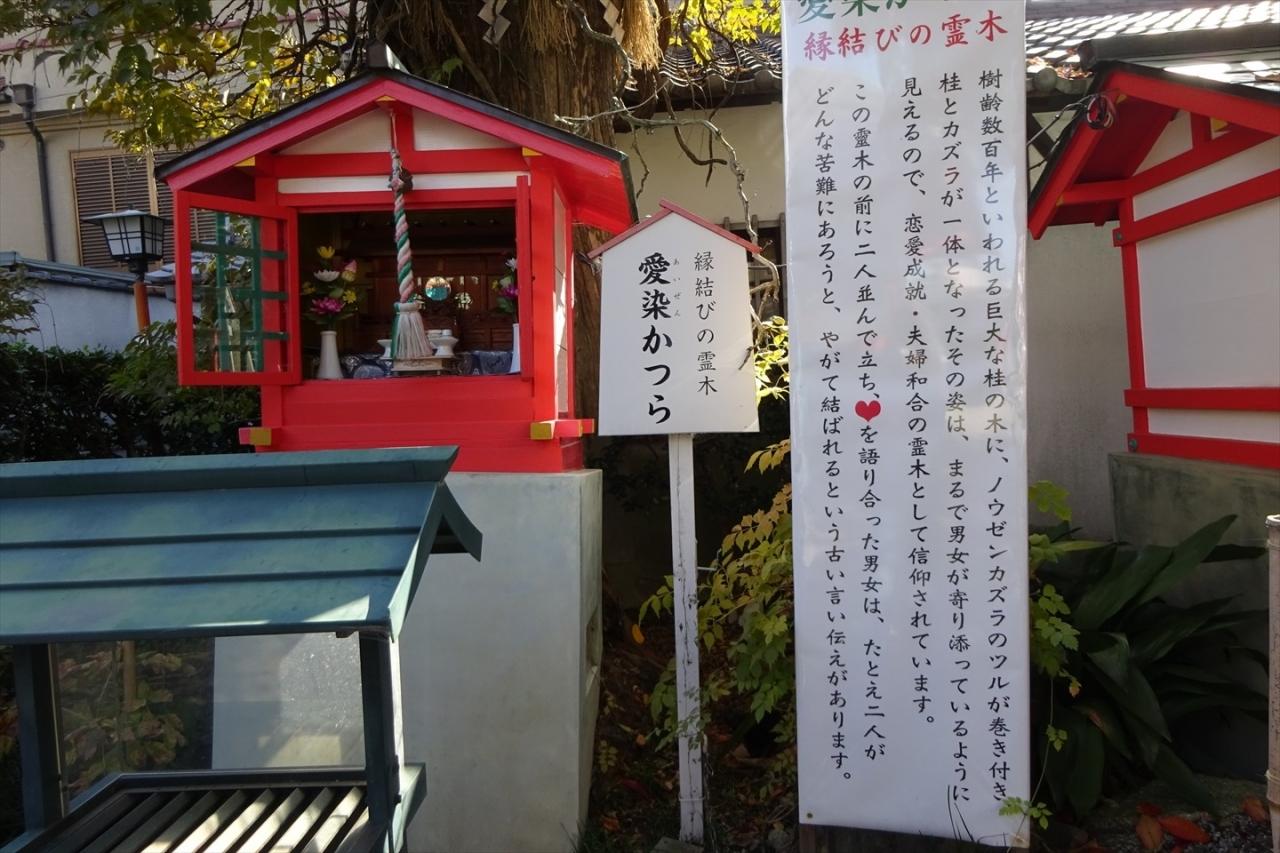 愛染か
縁結びの霊木
樹齢数百年といわれる巨大な桂の木に、ノウゼンカズラのツルが巻き付き
桂とカズラが一体となったその姿は、まるで男女が寄り添っているように
見えるので、恋愛成就・夫婦和合の霊木として信仰されています。
この霊木の前に二人並んで立ち、❤を語り合った男女は、たとえ二人が
どんな苦難にあろうと、やがて結ばれるという古い言い伝えがあります。
縁結びの霊木
あいぜん
愛染かつら